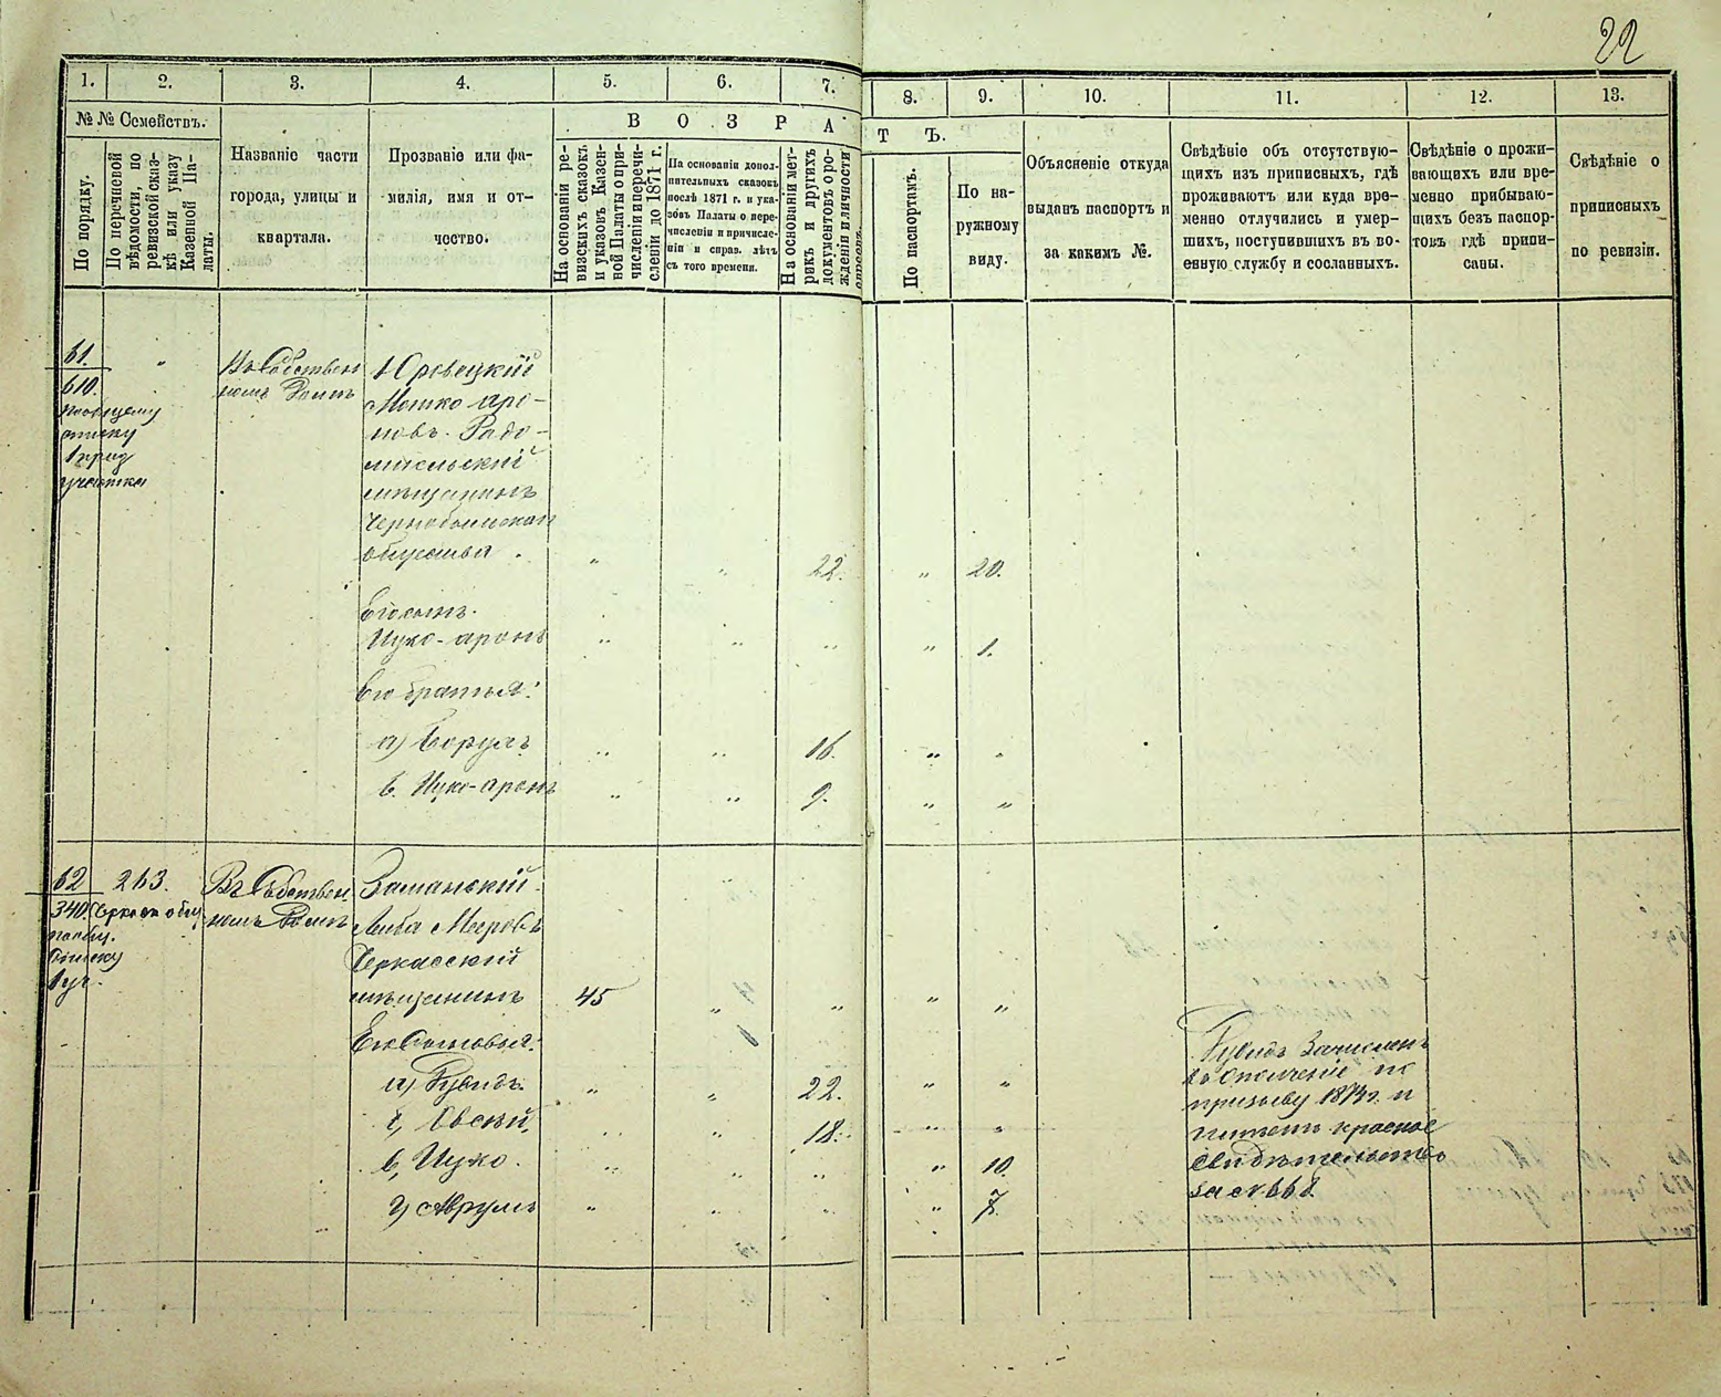 22
1. 2. 3. 4. 5. 6. 7. 8. 9. 10. 11. 12. 13.
№ № Семействъ.
По порядку.
По перечневой
вѣдомости, по
ревизской сказ-
кѣ или указу
Казенной Па-
латы.
Названіе части
города, улицы и
квартала.
Прозваніе или фа-
милія, имя и от-
чество.
ВОЗРАСТЪ.
На основаніи ре-
визскихъ сказокъ
и указовъ Казен-
ной Палаты о при-
численіи и перечи-
сленіи до 1871 г.
На основаніи допол-
нительныхъ сказокъ
послѣ 1871 г. и ука-
зовъ Палаты о пере-
численіи и причисле-
ніи и справ. лѣтъ
съ того времени.
На основаніи мет-
рикъ и другихъ
документовъ о ро-
жденіи и личности
По паспортамъ.
По на-
ружному
виду.
Объясненіе откуда
выданъ паспортъ и
за какимъ №.
Свѣдѣніе объ отсутствую-
щихъ изъ приписныхъ, гдѣ
проживаютъ или куда вре-
менно отлучились и умер-
шихъ, поступившихъ въ во-
енную службу и сосланныхъ.
Свѣдѣніе о прожи-
вающихъ или вре-
менно прибываю-
щихъ безъ паспор-
товъ гдѣ припи-
саны.
Свѣдѣніе о
приписныхъ
по ревизіи.
61.
610.
по общему
списку
1 приз
участка
Въ Собствен
номъ Домѣ
Юровецкій
Мошко Аро-
новъ. Радо-
мисльскій
мѣщанинъ
Чернобыльскаго
общества. " " 22. " 20.
Его сынъ.
Ицко-Аронъ " " " " 1.
Его братья:
а) Борухъ " " 16. " "
б. Ицко-Аронъ " " 9. " "
62 263.
340. Черкас общ
по общ.
списку
1 уч.
Въ Собствен
номъ Домѣ
Заманскій
Лейба Мееровъ
Черкасскій
мѣщанинъ 45 " " " "
Его Сыновья:
а) Гувидъ. " " 22. " "
б, Овсѣй, " " 18. " "
в, Ицко. " " " " 10.
г) Аврумъ " " " " 7.
Гувидъ Зачисленъ
въ Ополченіе по
призыву 187 г. и
имѣетъ красное
Свидѣтельство
за № 668